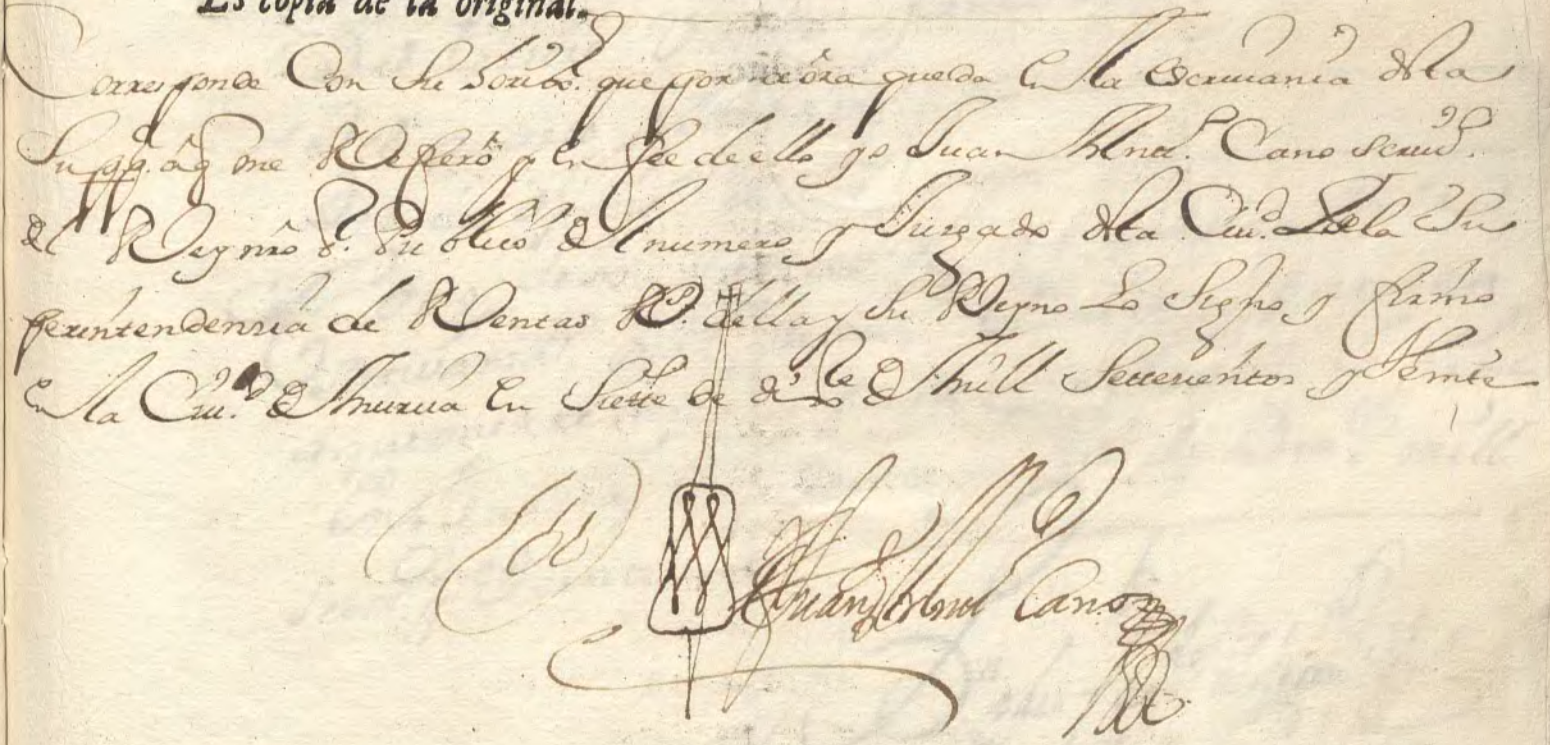 Es copia de la original.
Corresponde Con Su que por aora queda En la Escriuania desta
Su me Refiero y en fee de ello yo Juan Cano Scriu.
del Rey nro S. Publico del numero y Juzgado desta Ciu.d de la Su
perintendenzia de Rentas R.s della y Su Reyno Lo Signo, y firmo
en la Ciu.d de Murzia En Siette de de Mill Settecientos y Veinte
Juan Cano